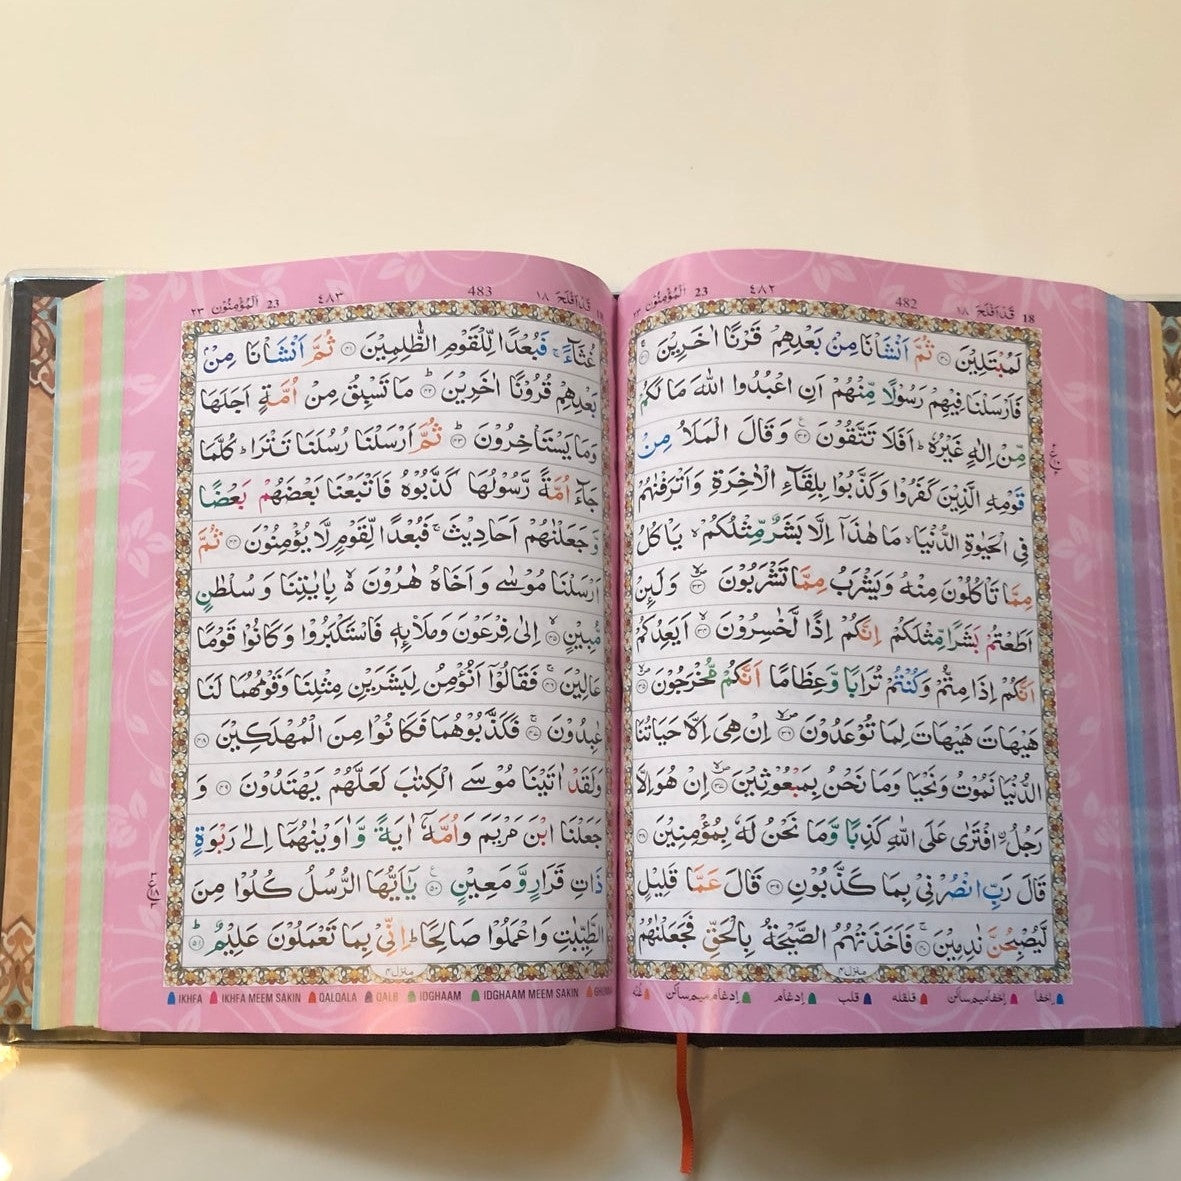 18 قَدْ اَفْلَحَ ١٨
482
٤٨٢
23 اَلْمُؤْمِنُوْن ٢٣
لَمُبْتَلِيْنَ ۝٣٠ ثُمَّ اَنْشَاْنَا مِنْۢ بَعْدِهِمْ قَرْنًا اٰخَرِيْنَ ۝٣١
فَاَرْسَلْنَا فِيْهِمْ رَسُوْلًا مِّنْهُمْ اَنِ اعْبُدُوا اللّٰهَ مَا لَكُمْ
مِّنْ اِلٰهٍ غَيْرُهٗ ؕ اَفَلَا تَتَّقُوْنَ ۝٣٢ وَقَالَ الْمَلَاُ مِنْ
قَوْمِهِ الَّذِيْنَ كَفَرُوْا وَكَذَّبُوْا بِلِقَآءِ الْاٰخِرَةِ وَاَتْرَفْنٰهُمْ
فِي الْحَيٰوةِ الدُّنْيَا ۙ مَا هٰذَاۤ اِلَّا بَشَرٌ مِّثْلُكُمْ ۙ يَاْكُلُ
مِمَّا تَاْكُلُوْنَ مِنْهُ وَيَشْرَبُ مِمَّا تَشْرَبُوْنَ ۝٣٣ وَلَىِٕنْ
اَطَعْتُمْ بَشَرًا مِّثْلَكُمْ اِنَّكُمْ اِذًا لَّخٰسِرُوْنَ ۝٣٤ اَيَعِدُكُمْ
اَنَّكُمْ اِذَا مِتُّمْ وَكُنْتُمْ تُرَابًا وَّعِظَامًا اَنَّكُمْ مُّخْرَجُوْنَ ۝٣٥
هَيْهَاتَ هَيْهَاتَ لِمَا تُوْعَدُوْنَ ۝٣٦ اِنْ هِيَ اِلَّا حَيَاتُنَا
الدُّنْيَا نَمُوْتُ وَنَحْيَا وَمَا نَحْنُ بِمَبْعُوْثِيْنَ ۝٣٧ اِنْ هُوَ اِلَّا
رَجُلُ ࣙافْتَرٰى عَلَى اللّٰهِ كَذِبًا وَّمَا نَحْنُ لَهٗ بِمُؤْمِنِيْنَ ۝٣٨
قَالَ رَبِّ انْصُرْنِيْ بِمَا كَذَّبُوْنِ ۝٣٩ قَالَ عَمَّا قَلِيْلٍ
لَّيُصْبِحُنَّ نٰدِمِيْنَ ۝٤٠ فَاَخَذَتْهُمُ الصَّيْحَةُ بِالْحَقِّ فَجَعَلْنٰهُمْ
منزل ٤
إخفا
إخفا ميم ساكن
قلقله
قلب
إدغام
إدغام ميم ساكن
غنه
18 قَدْ اَفْلَحَ ١٨
483
٤٨٣
23 اَلْمُؤْمِنُوْن ٢٣
غُثَآءً ۚ فَبُعْدًا لِّلْقَوْمِ الظّٰلِمِيْنَ ۝٤١ ثُمَّ اَنْشَاْنَا مِنْۢ
بَعْدِهِمْ قُرُوْنًا اٰخَرِيْنَ ۝٤٢ مَا تَسْبِقُ مِنْ اُمَّةٍ اَجَلَهَا
وَمَا يَسْتَاْخِرُوْنَ ۝٤٣ ثُمَّ اَرْسَلْنَا رُسُلَنَا تَتْرَا ؕ كُلَّمَا
جَآءَ اُمَّةً رَّسُوْلُهَا كَذَّبُوْهُ فَاَتْبَعْنَا بَعْضَهُمْ بَعْضًا
وَّجَعَلْنٰهُمْ اَحَادِيْثَ ۚ فَبُعْدًا لِّقَوْمٍ لَّا يُؤْمِنُوْنَ ۝٤٤ ثُمَّ
اَرْسَلْنَا مُوْسٰى وَاَخَاهُ هٰرُوْنَ ۙ۬ بِاٰيٰتِنَا وَسُلْطٰنٍ
مُّبِيْنٍ ۝٤٥ اِلٰى فِرْعَوْنَ وَمَلَا۟ىِٕهٖ فَاسْتَكْبَرُوْا وَكَانُوْا قَوْمًا
عَالِيْنَ ۝٤٦ فَقَالُوْۤا اَنُؤْمِنُ لِبَشَرَيْنِ مِثْلِنَا وَقَوْمُهُمَا لَنَا
عٰبِدُوْنَ ۝٤٧ فَكَذَّبُوْهُمَا فَكَانُوْا مِنَ الْمُهْلَكِيْنَ ۝٤٨
وَلَقَدْ اٰتَيْنَا مُوْسَى الْكِتٰبَ لَعَلَّهُمْ يَهْتَدُوْنَ ۝٤٩ وَ
جَعَلْنَا ابْنَ مَرْيَمَ وَاُمَّهٗۤ اٰيَةً وَّاٰوَيْنٰهُمَاۤ اِلٰى رَبْوَةٍ
ذَاتِ قَرَارٍ وَّمَعِيْنٍ ۝٥٠ يٰۤاَيُّهَا الرُّسُلُ كُلُوْا مِنَ
الطَّيِّبٰتِ وَاعْمَلُوْا صَالِحًا ؕ اِنِّيْ بِمَا تَعْمَلُوْنَ عَلِيْمٌ ۝٥١
منزل ٤
IKHFA
IKHFA MEEM SAKIN
QALQALA
QALB
IDGHAAM
IDGHAAM MEEM SAKIN